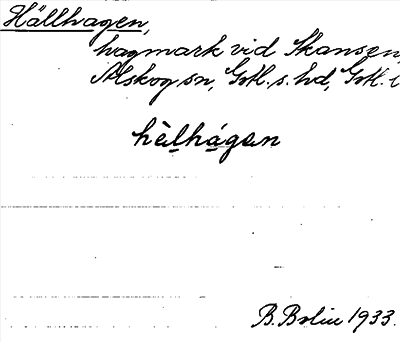 Hällhagen,
hagmark vid Skansen,
Alskog sn, Gotl. s. hd, Gotl. l
hèlhágan
B. Bolin 1933.